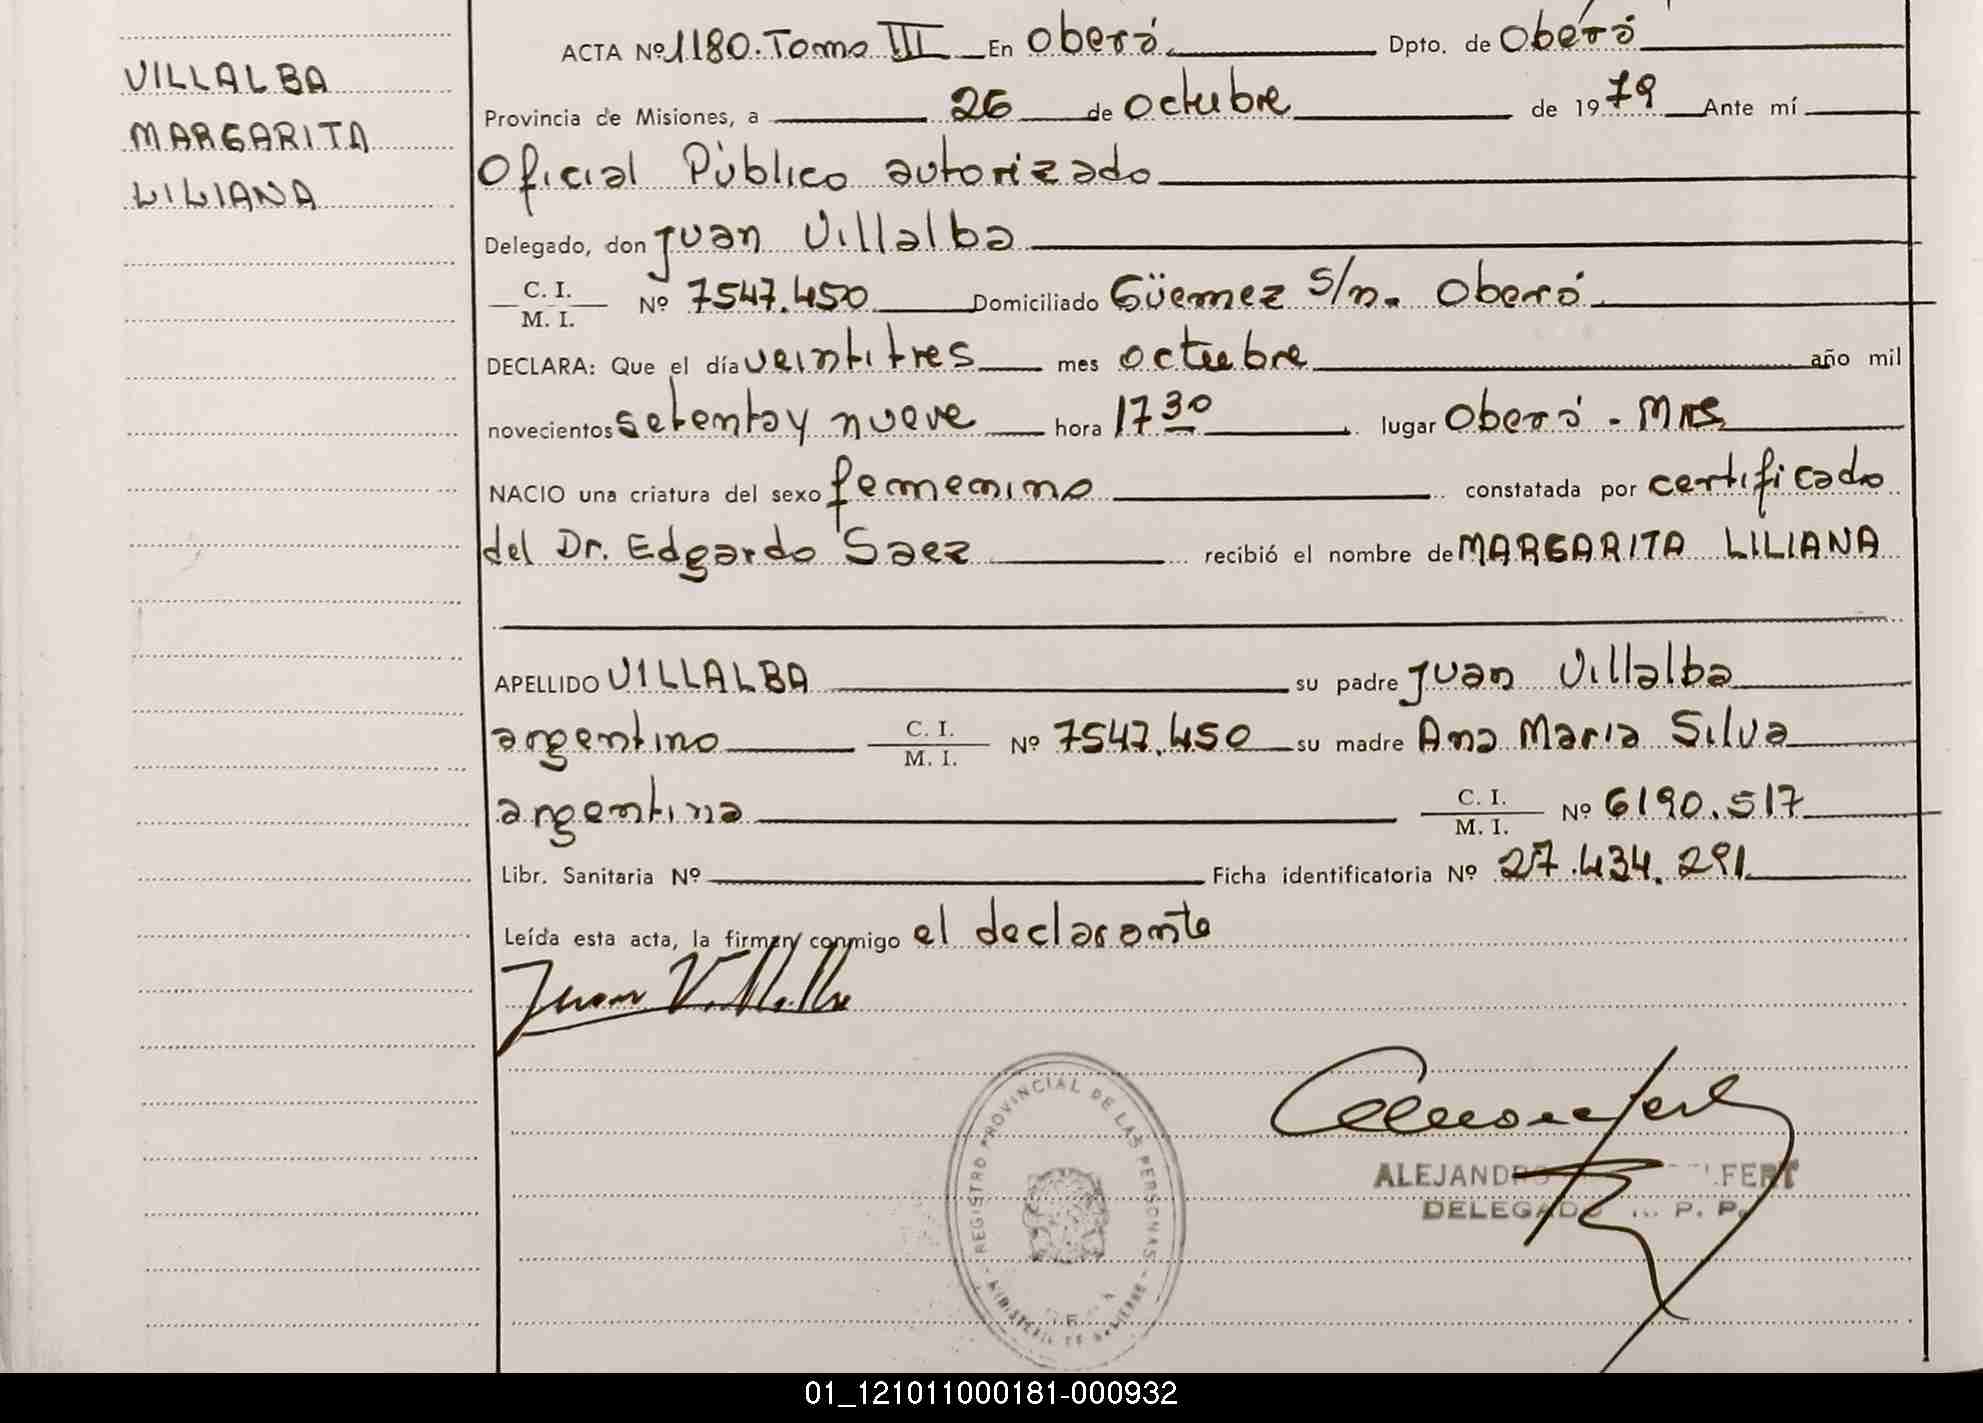 VILLALBA
MARGARITA
LILIANA
ACTA Nº 1180. Tomo III En Oberá. Dpto. de Oberá
Provincia de Misiones, a 26 de octubre de 1979 Ante mí
Oficial Público autorizado
Delegado, don Juan Villalba
C. I.
M. I. Nº 7547.450 Domiciliado Güemez s/n. Oberá
DECLARA: Que el día veintitres mes octubre año mil
novecientos setenta y nueve hora 17 30 lugar Oberá - Mns
NACIO una criatura del sexo femenino constatada por certificado
del Dr. Edgardo Saez recibió el nombre de MARGARITA LILIANA
APELLIDO VILLALBA su padre Juan Villalba
argentino C. I.
M. I. Nº 7547.450 su madre Ana Maria Silva
argentina C. I.
M. I. Nº 6190.517
Libr. Sanitaria Nº Ficha identificatoria Nº 27.434.291
Leída esta acta, la firman conmigo el declarante
Juan Villalba
REGISTRO PROVINCIAL DE LAS PERSONAS
ALEJANDRO
DELEGADO P. P.
01_121011000181-000932